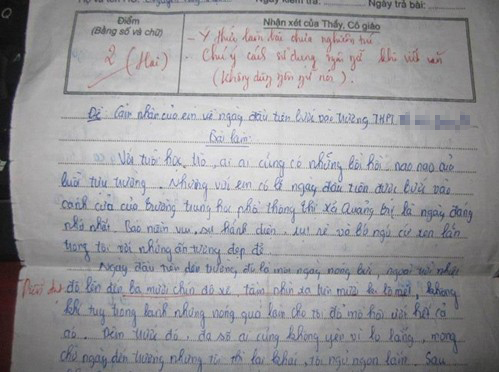 Ngày kiểm tra: Ngày trả bài:
Điểm
(Bằng số và chữ)
Nhận xét của Thầy, Cô giáo
2 (Hai)
- Ý thức làm bài chưa nghiêm túc
- Chú ý cách sử dụng ngôn ngữ khi viết văn
(Không dùng ngôn ngữ nói).
Đề: Cảm nhận của em về ngày đầu tiên bước vào trường THPT
Bài làm:
Với tuổi học trò, ai ai cũng có những bồi hồi nao nao của
buổi tựu trường. Nhưng với em có lẽ ngày đầu tiên được bước vào
cánh cửa của trường trung học phổ thông thị xã Quảng Trị là ngày đáng
nhớ nhất. Bao niềm vui, sự hãnh diện, và bỡ ngỡ cứ xen lẫn
trong tôi với những ấn tượng đẹp đẽ.
Ngày đầu tiên đến trường, đó là một ngày nóng bức, ngoài trời nhiệt
độ lên đến ba mươi chín độ xê, tầm nhìn xa trên mười ki lô mét, không
khí tuy trong lành nhưng nóng quá làm cho tôi đổ mồ hôi ướt hết cả
áo. Đêm trước đó, đa số ai cũng không yên vì lo lắng, mong
chờ ngày đến trường nhưng tôi thì lại khác, tôi ngủ ngon lắm. Sau